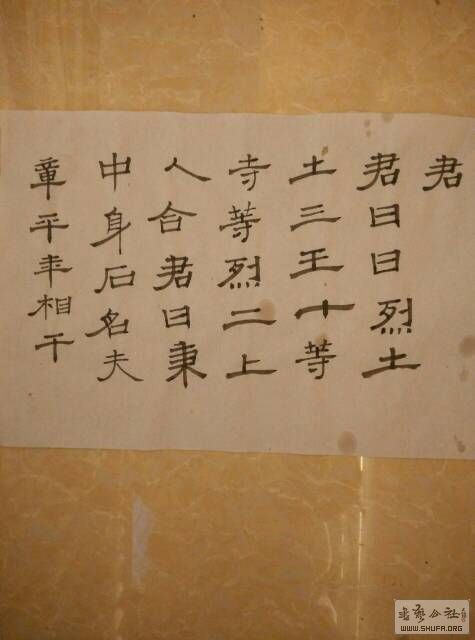 君
君曰曰烈土
土三王十等
寺等烈二上
人合君曰秉
中身石名夫
章平年相干
WWW.SHUFA.ORG